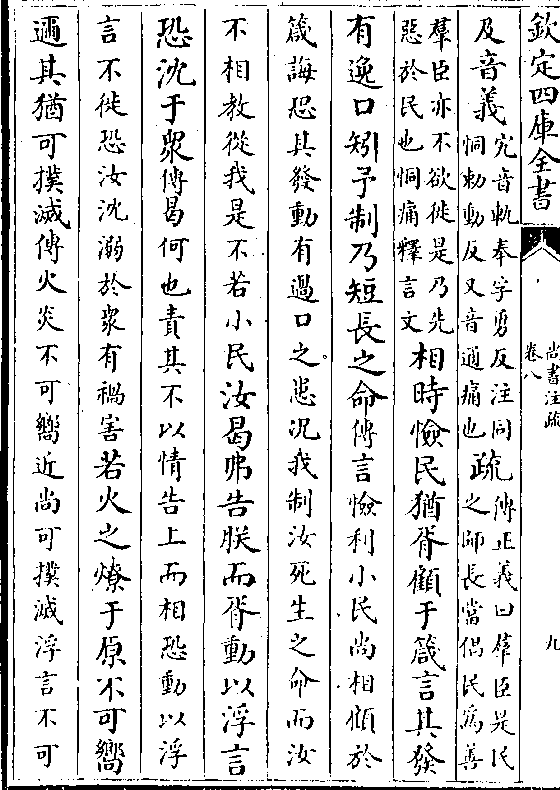 欽定四庫全書
尚書注疏
卷八
九
及音義
宄音軌奉孚勇反注同
恫勅動反又音通痛也
疏
傳正義曰羣臣是民
之師長當倡民為善
羣臣亦不欲徙是乃先
惡於民也恫痛釋言文
相時憸民猶胥顧于箴言其發
有逸口矧予制乃短長之命傳言憸利小民尚相顧於
箴誨恐其發動有過口之患况我制汝死生之命而汝
不相教從我是不若小民汝曷弗告朕而胥動以浮言
恐沈于衆傳曷何也責其不以情告上而相恐動以浮
言不徙恐汝沈溺於衆有禍害若火之燎于原不可嚮
邇其猶可撲滅傳火炎不可嚮近尚可撲滅浮言不可